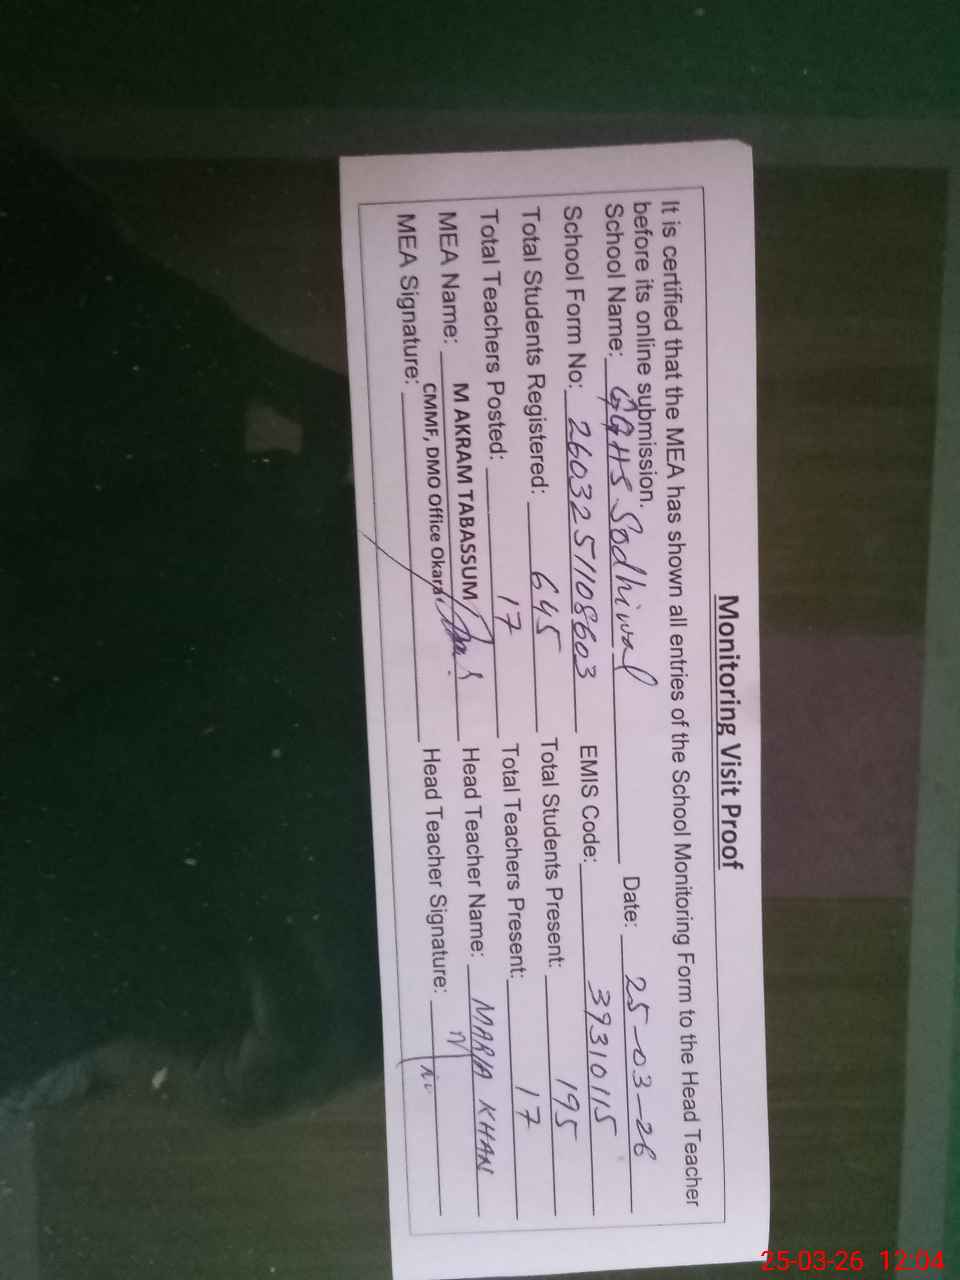 Monitoring Visit Proof
It is certified that the MEA has shown all entries of the School Monitoring Form to the Head Teacher
before its online submission.
School Name: GGHS Sodhiwal Date: 25-03-26
School Form No: 2603251108603 EMIS Code: 39310115
Total Students Registered: 645 Total Students Present: 195
Total Teachers Posted: 17 Total Teachers Present: 17
MEA Name: M AKRAM TABASSUM Head Teacher Name: MARIA KHAN
CMMF, DMO Office Okara
MEA Signature: Head Teacher Signature:
25-03-26 12:04